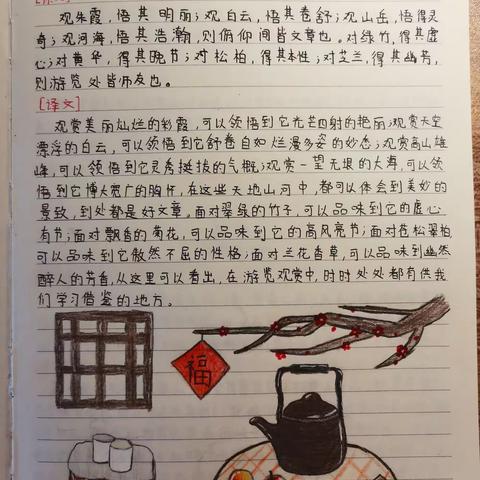 观朱霞，悟其明丽；观白云，悟其卷舒；观山岳，悟得灵
奇；观河海，悟其浩瀚，则俯仰间皆文章也。对绿竹，得其虚
心；对黄华，得其晚节；对松柏，得其本性；对芝兰，得其幽芳，
则游览处皆师友也。
[译文]
观赏美丽灿烂的彩霞，可以领悟到它光芒四射的艳丽；观赏天空
漂浮的白云，可以领悟到它舒卷自如烂漫多姿的妙态；观赏高山雄
峰，可以领悟到它灵秀挺拔的气概；观赏一望无垠的大海，可以领
悟到它博大宽广的胸怀，在这些天地山河中，都可以体会到美妙的
景致，到处都是好文章。面对翠绿的竹子，可以品味到它的虚心
有节；面对飘香的菊花，可以品味到它的高风亮节；面对苍松翠柏
可以品味到它傲然不屈的性格；面对兰花香草，可以品味到幽然
醉人的芳香，从这里可以看出，在游览观赏中，时时处处都有供我
们学习借鉴的地方。
福